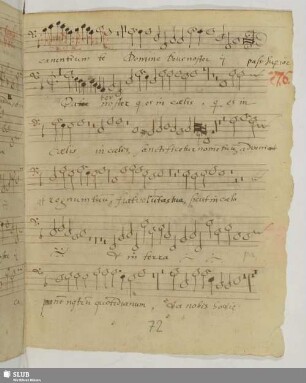 timentium te Domine Deus noster
276
Pater noster q es in cælis, q es in
cælis in cælis, sanctificetur nomen tuũ, adveniat
regnum tuũ, fiat voluntas tua, sicut in cælo
& in terra
panẽ nostrũ quotidianum, Da nobis hodie
72
SLUB